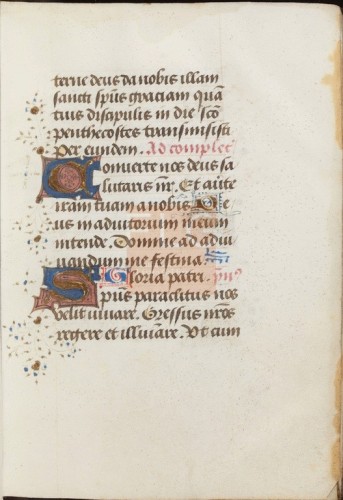 terne deus da nobis illam
sancti sp̃us graciam quã
tuis discipulis in die sc̃o
penthecostes transmisisti
Per eundem. Ad complet
Converte nos deus sa
lutaris nr̃. Et aũte
iram tuam a nobis. De
us in adiutorium meum
intende. Domine ad adiu
uandum me festina.
Gloria patri. ym̃s
Sp̃us paraclitus nos
velit iuuare. Gressus nr̃os
regere et illuiãre. Ut cum